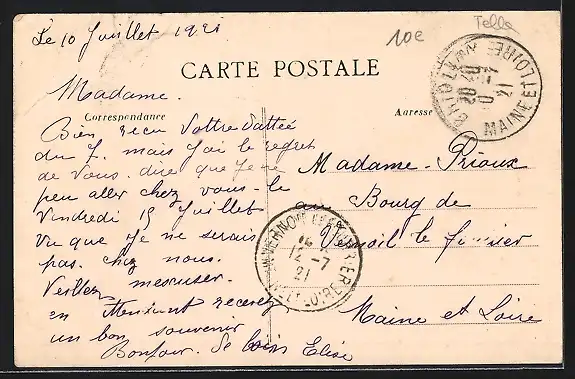 Le 10 Juillet 1921
10e
Tello
CARTE POSTALE
Madame.
Correspondance
Adresse
Bien recu Vottre dattée
du 7. mais j'ai le regret
de vous dire que je ne
peu aller chez vous le
Vendredi 15 Juillet
vu que je ne serais
pas chez nous.
Veillez mescuser.
en attendant recevez
un bon souvenir
Bonjour de loin Elise
Madame Prioux
au Bourg de
Vernoil le fourrier
Maine et Loire
MAINE ET LOIRE
VERNOIL LE FOURRIER
12 -7
21